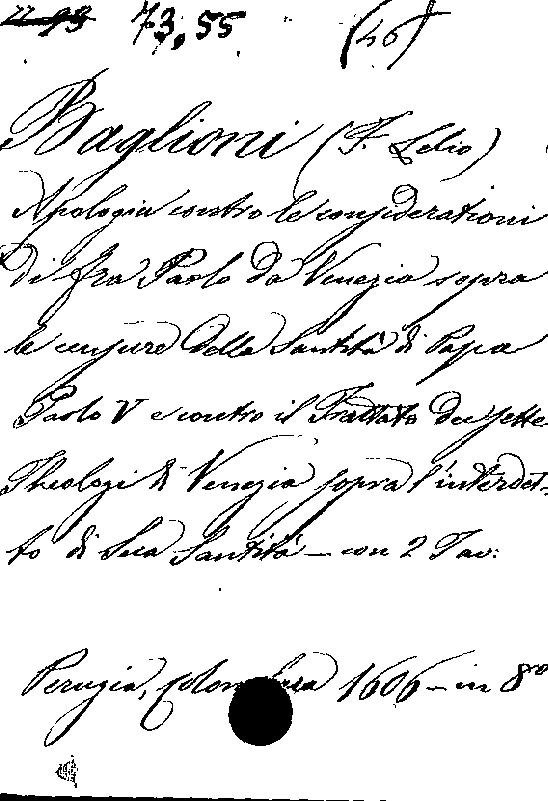 73,55 (46)
Baglioni (F. Lelio)
Apologia contro le considerationi
di fra Paolo da Venezia sopra
le censure della Santità di Papa
Paolo V e contro il Trattato dei sette
Theologi di Venezia sopra l'interdet-
to di Sua Santità – con 2 Tav:
Perugia, 1606 – in 8°